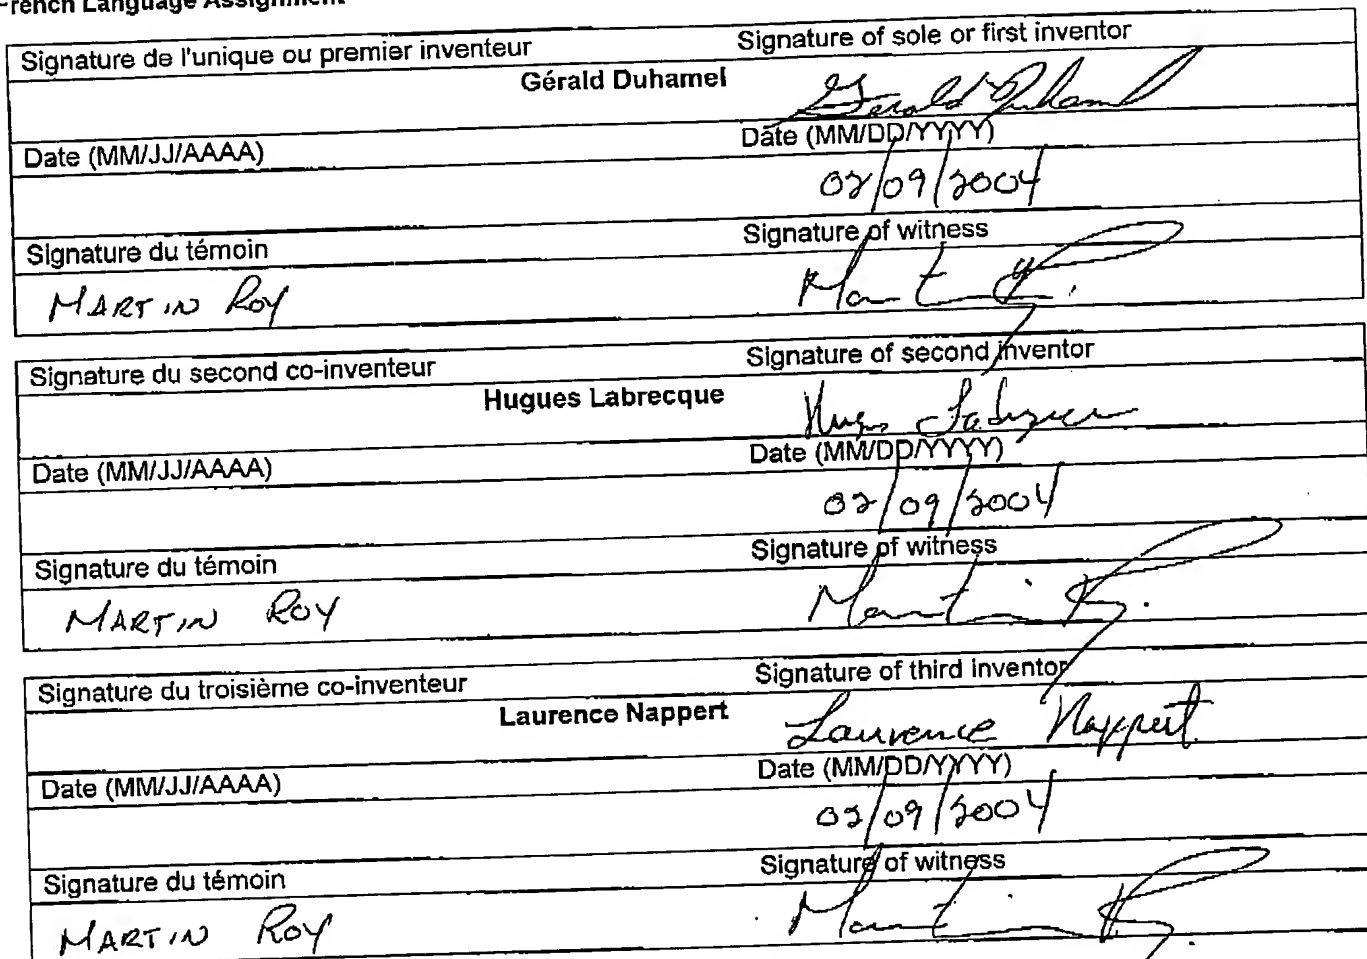 French Language Assignment
Signature de l'unique ou premier inventeur Signature of sole or first inventor
Gérald Duhamel Gerald Duhamel
Date (MM/JJ/AAAA) Date (MM/DD/YYYY)
02/09/2004
Signature du témoin Signature of witness
MARTIN ROY Martin R.
Signature du second co-inventeur Signature of second inventor
Hugues Labrecque Hugues Labrecque
Date (MM/JJ/AAAA) Date (MM/DD/YYYY)
02/09/2004
Signature du témoin Signature of witness
MARTIN ROY Martin R.
Signature du troisième co-inventeur Signature of third inventor
Laurence Nappert Laurence Nappert
Date (MM/JJ/AAAA) Date (MM/DD/YYYY)
02/09/2004
Signature du témoin Signature of witness
MARTIN ROY Martin R.